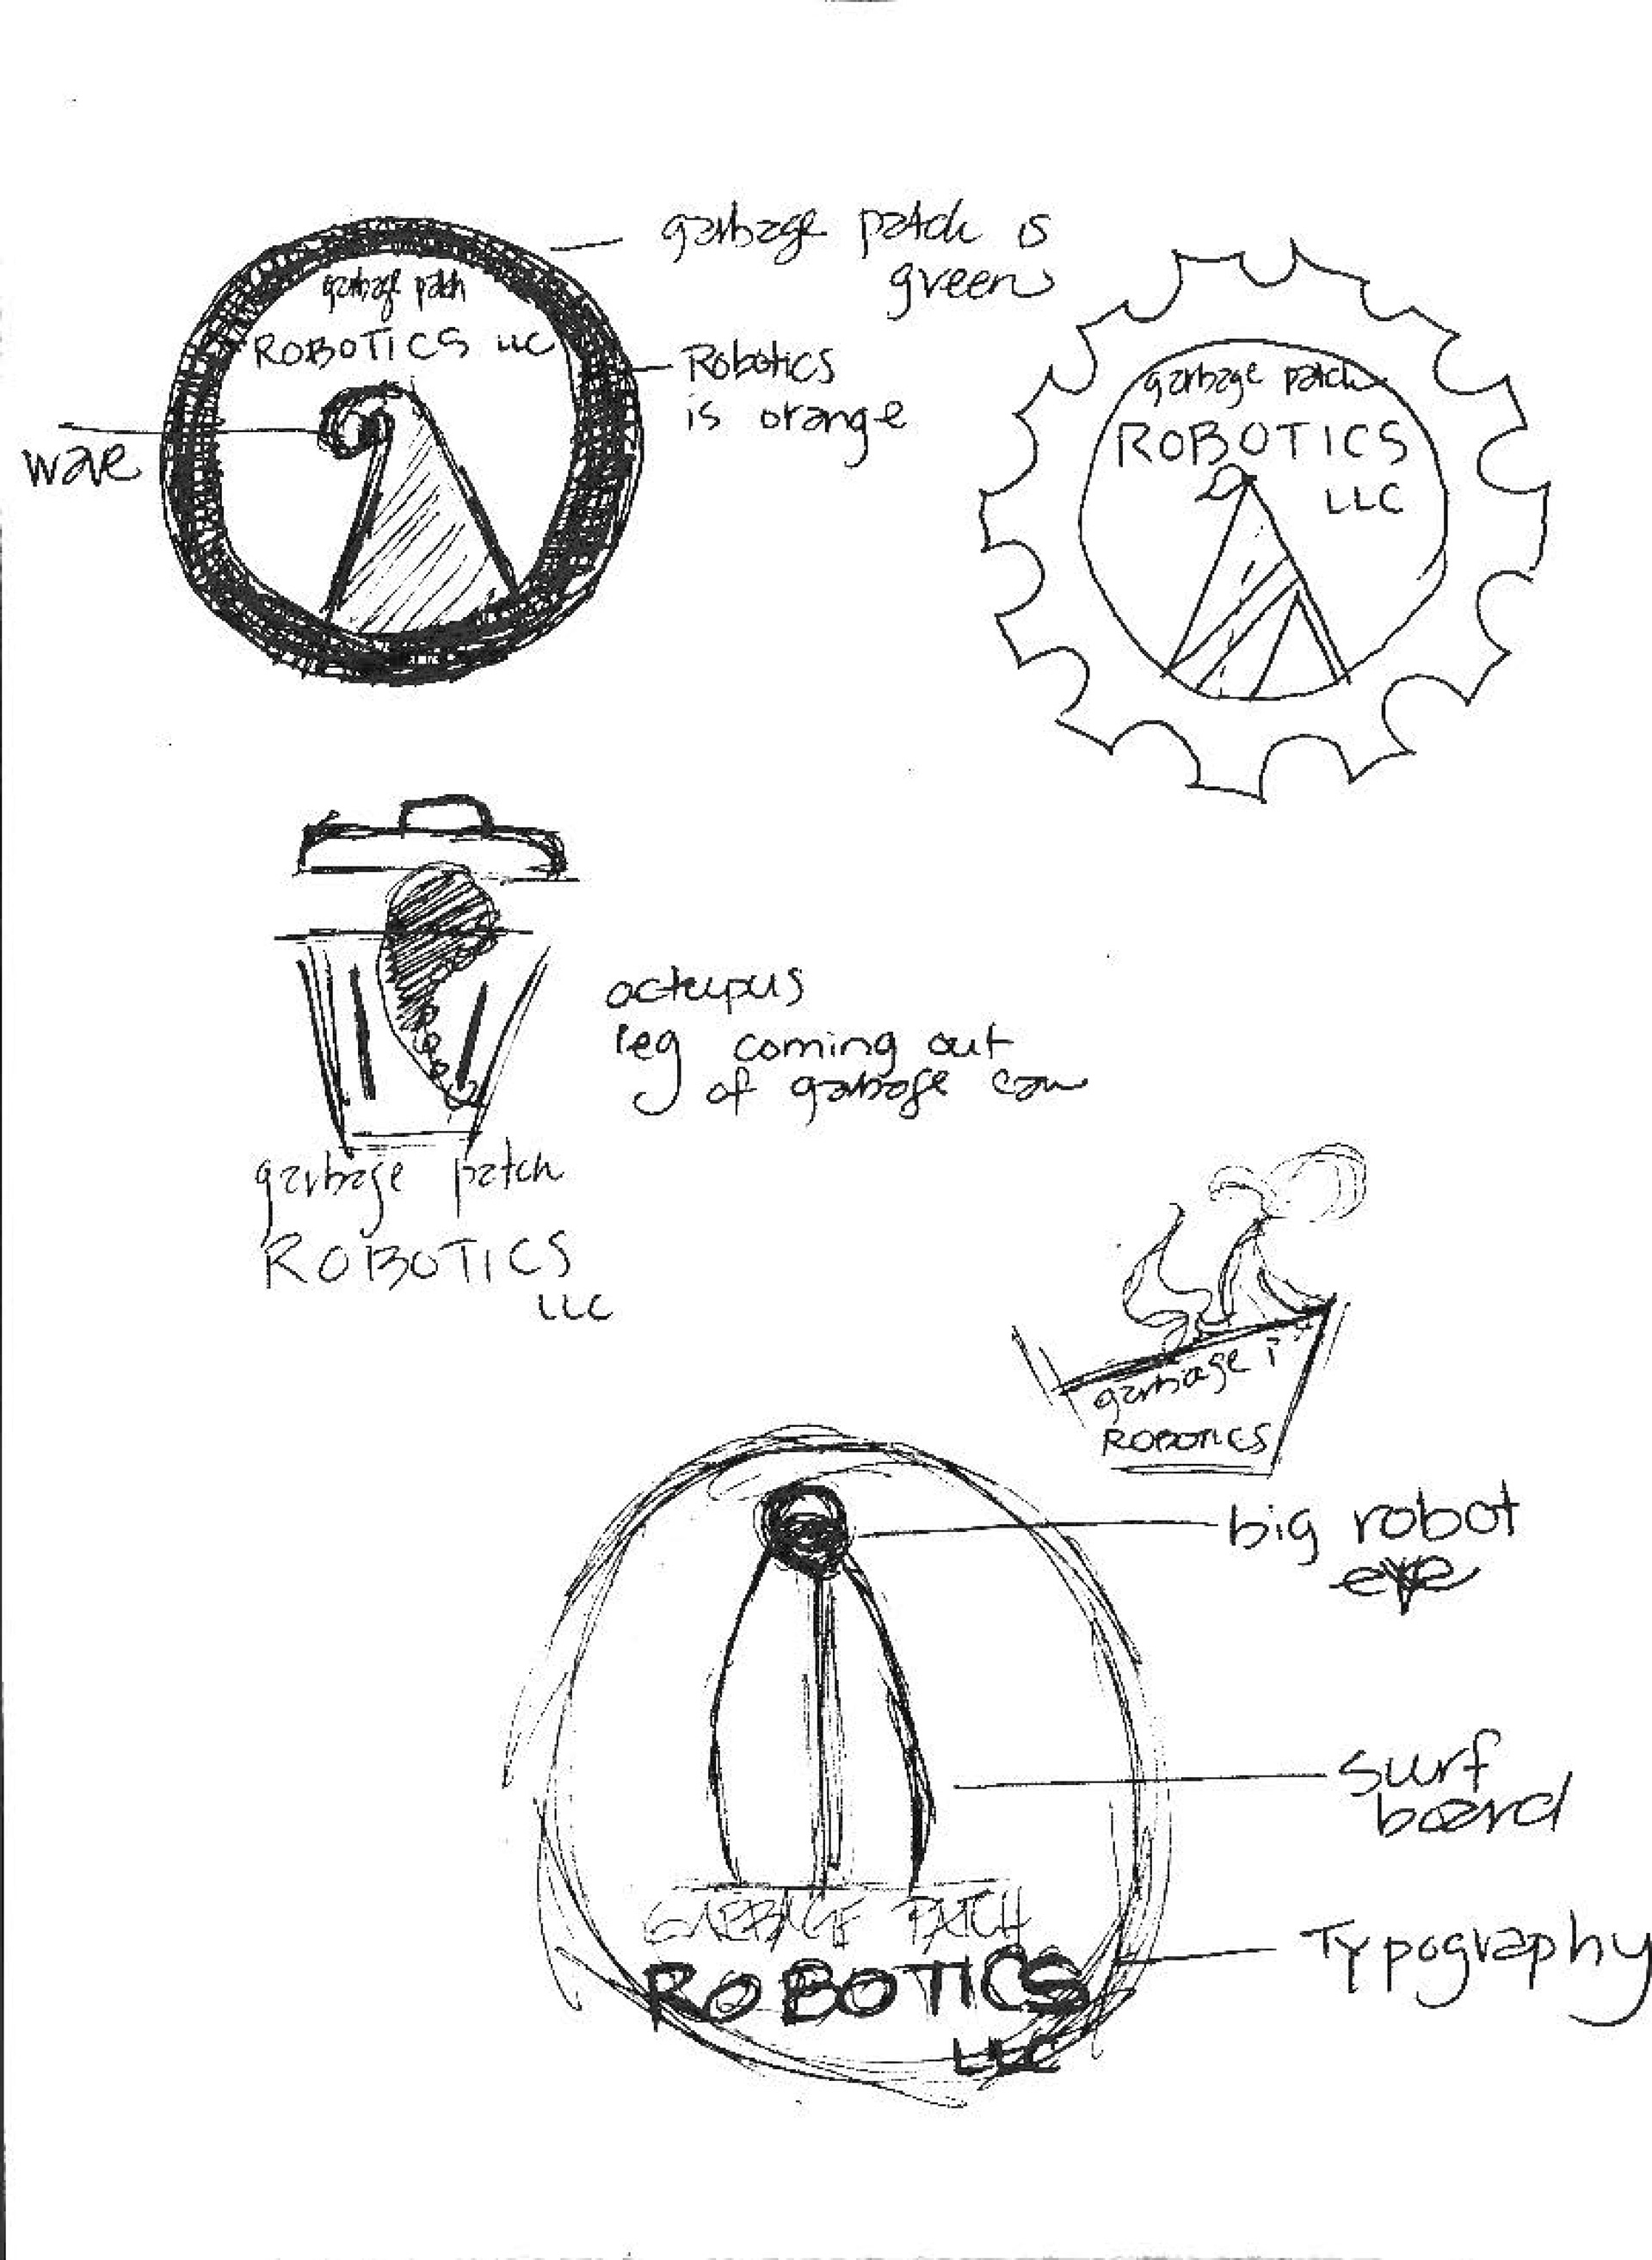 garbage patch is
green
garbage patch
ROBOTICS LLC
Robotics
is orange
wave
garbage patch
ROBOTICS
LLC
octupus
leg coming out
of garbage can
garbage patch
ROBOTICS
LLC
garbage P
ROBOTICS
big robot
eye
surf
board
GARBAGE PATCH
ROBOTICS
LLC
Typography